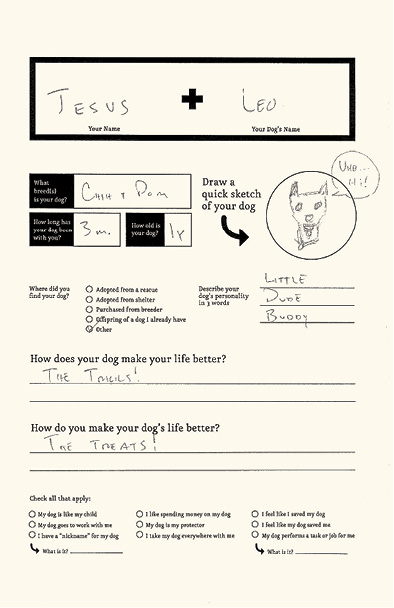 Jesus + Leo
Your Name Your Dog's Name
What breed(s) is your dog? Chih + Pom
How long has your dog been with you? 3 m. How old is your dog? 1 y
Draw a quick sketch of your dog
Uhh... Hi!
Where did you find your dog?
Adopted from a rescue
Adopted from shelter
Purchased from breeder
Offspring of a dog I already have
Other
Describe your dog's personality in 3 words
Little
Dude
Buddy
How does your dog make your life better?
The Tricks!
How do you make your dog's life better?
The Treats!
Check all that apply:
My dog is like my child
My dog goes to work with me
I have a "nickname" for my dog
What is it?
I like spending money on my dog
My dog is my protector
I take my dog everywhere with me
I feel like I saved my dog
I feel like my dog saved me
My dog performs a task or job for me
What is it?